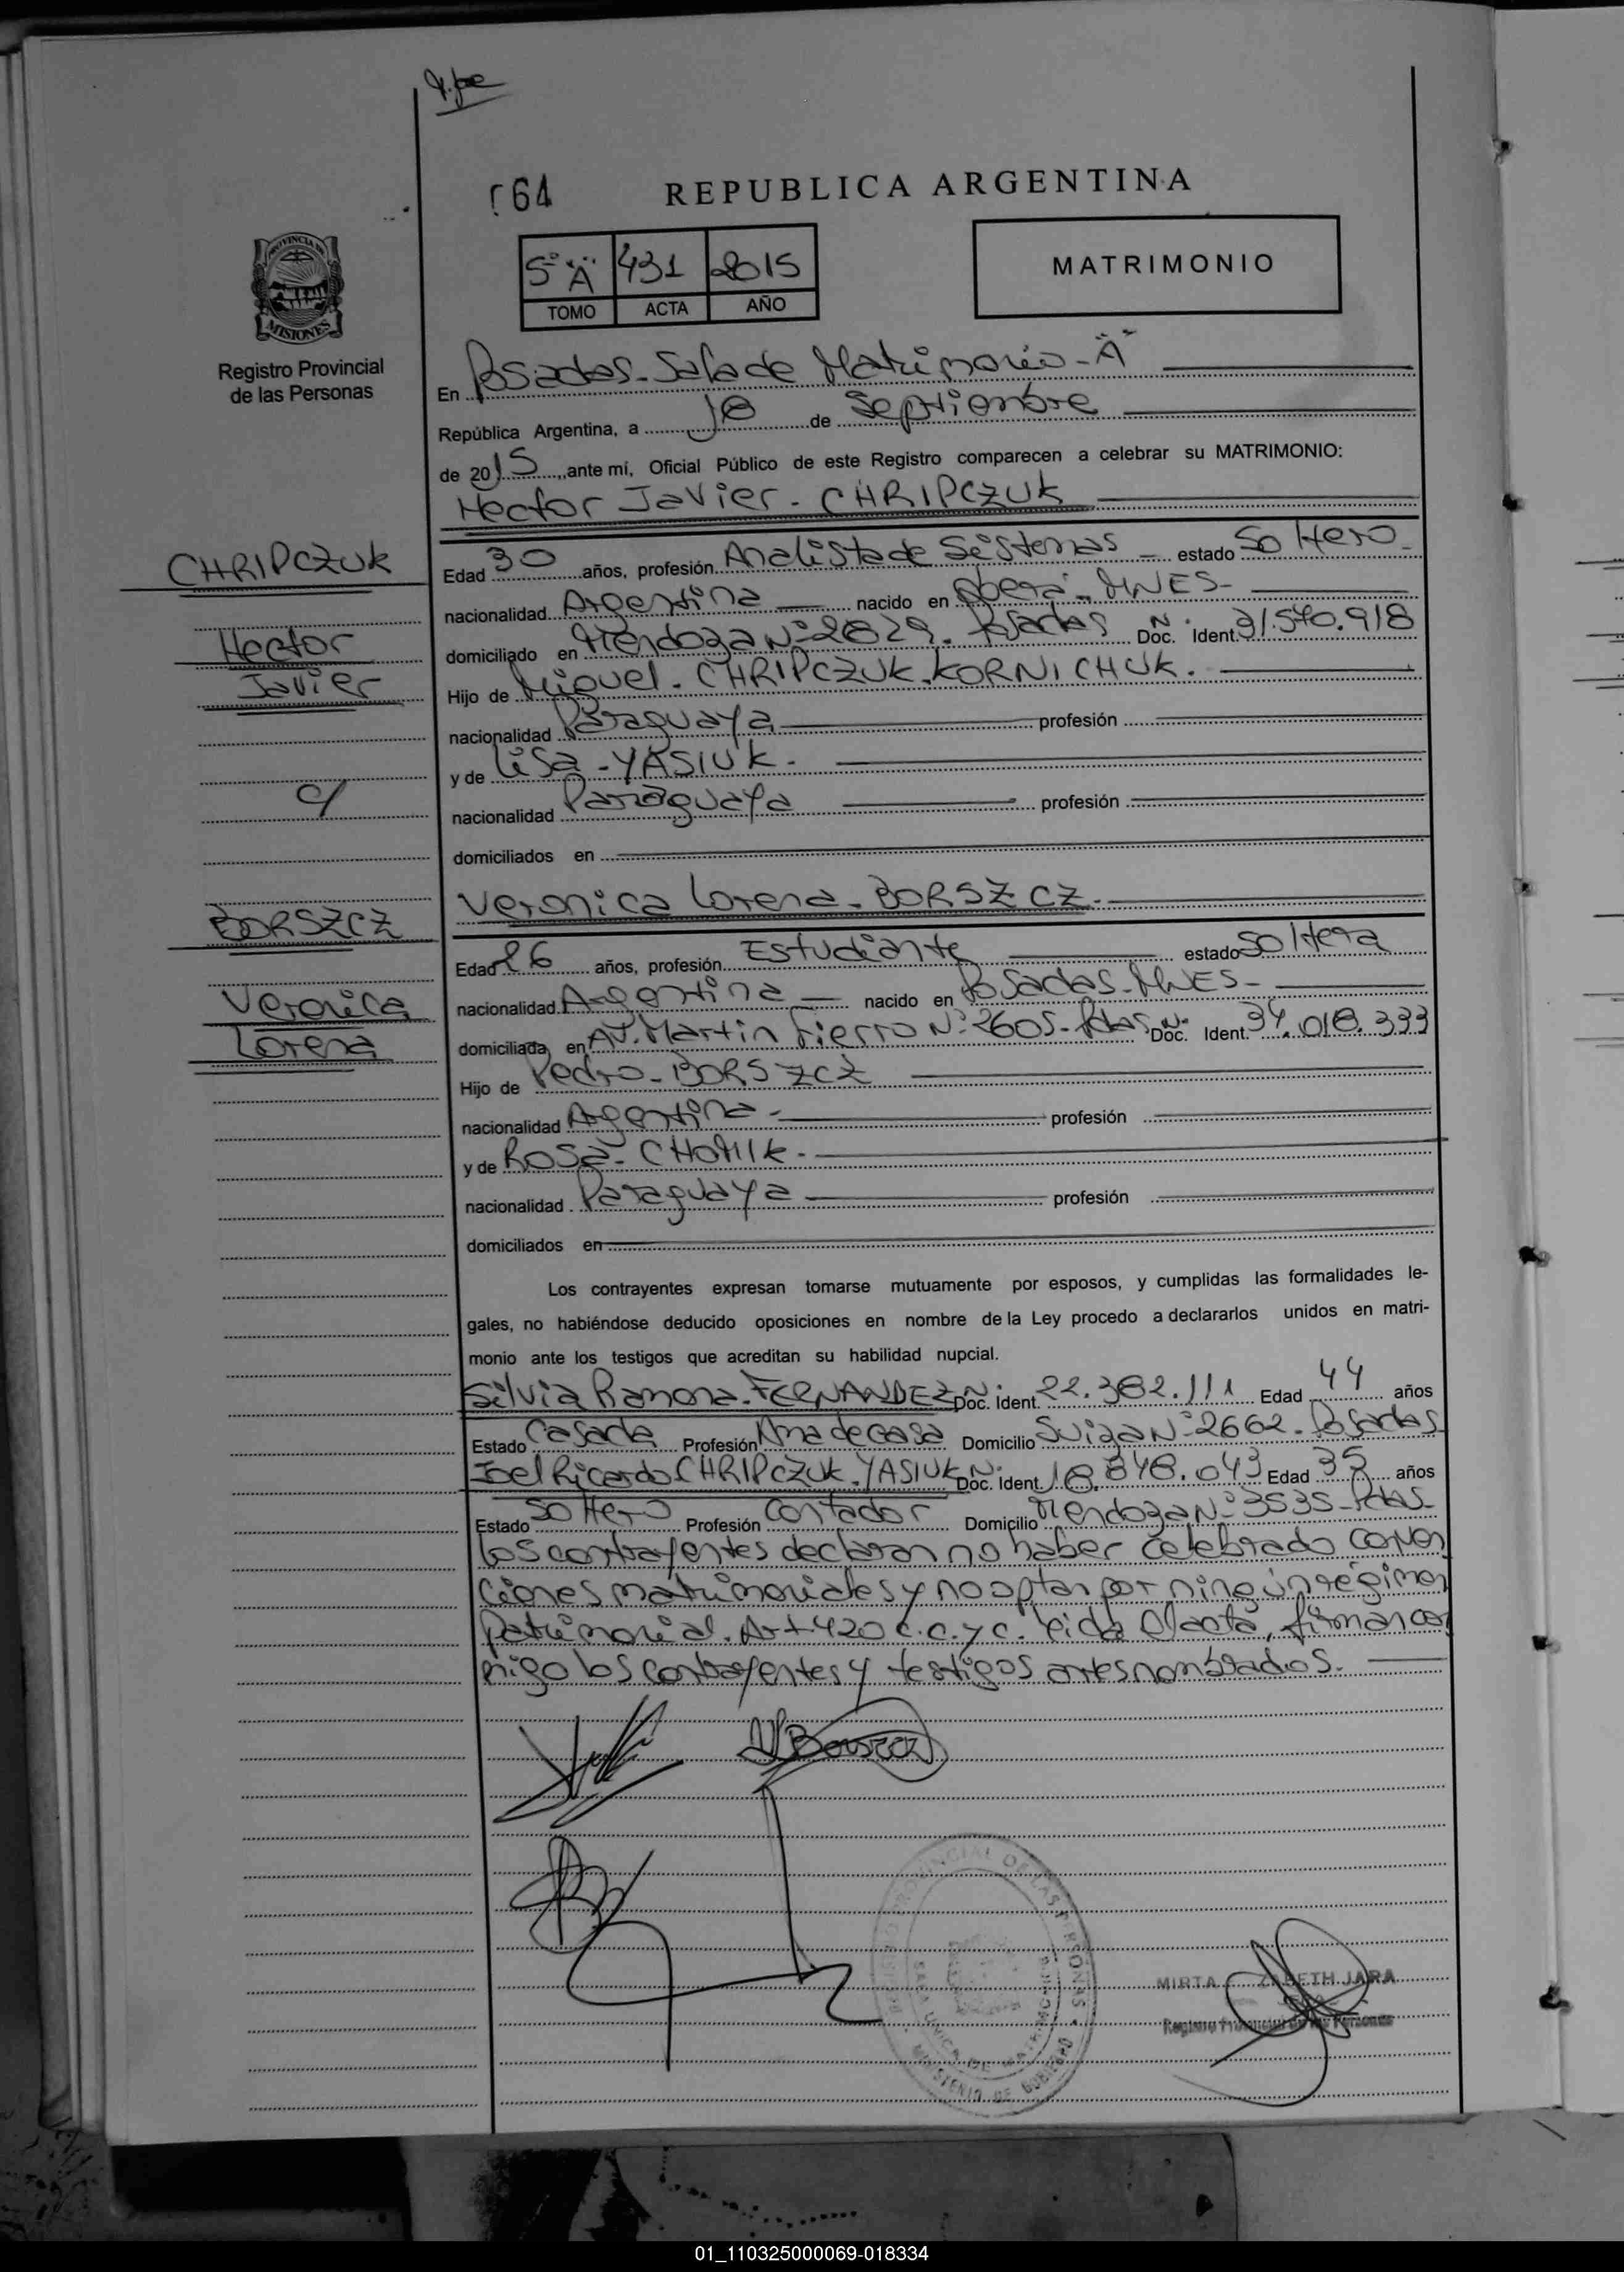 164
REPUBLICA ARGENTINA
5º "A" 431 2015
TOMO ACTA AÑO
MATRIMONIO
PROVINCIA DE
MISIONES
Registro Provincial
de las Personas
En Posadas-Sala de Matrimonio-"A"
República Argentina, a 18 de Septiembre
de 2015, ante mí, Oficial Público de este Registro comparecen a celebrar su MATRIMONIO:
Hector Javier-CHRIPCZUK
CHRIPCZUK
Hector
Javier
c/
BORSZCZ
Veronica
Lorena
Edad 30 años, profesión Analista de Sistemas estado Soltero
nacionalidad Argentina nacido en Oberá-MNES-
domiciliado en Mendoza Nº 2829. Posadas Doc. Nº Ident. 31.570.918
Hijo de Miguel. CHRIPCZUK.KORNICHUK.
nacionalidad Paraguaya profesión
y de Lisa-YASIUK.
nacionalidad Paraguaya profesión
domiciliados en
Veronica Lorena-BORSZCZ.
Edad 26 años, profesión Estudiante estado Soltera
nacionalidad Argentina nacido en Posadas-MNES-
domiciliada en AV. Martin Fierro Nº 2605-Pdas Doc. Nº Ident. 34.018.333
Hijo de Pedro-BORSZCZ
nacionalidad Argentina- profesión
y de Rosa-CHOMIK.
nacionalidad Paraguaya profesión
domiciliados en
Los contrayentes expresan tomarse mutuamente por esposos, y cumplidas las formalidades le-
gales, no habiéndose deducido oposiciones en nombre de la Ley procedo a declararlos unidos en matri-
monio ante los testigos que acreditan su habilidad nupcial.
Silvia Ramona-FERNANDEZ Doc. Nº Ident. 22.382.111 Edad 44 años
Estado Casada Profesión Ama de casa Domicilio Suiza Nº 2662-Posadas
Joel Ricardo CHRIPCZUK.YASIUK Doc. Nº Ident. 18.848.043 Edad 35 años
Estado Soltero Profesión Contador Domicilio Mendoza Nº 3535-Pdas-
Los contrayentes declaran no haber celebrado conven
ciones matrimoniales y no optan por ningún régimen
Patrimonial. Art 420 C.C. y C. leida el acta, firman con
migo los contrayentes y testigos antes nombrados.
V Borszcz
REGISTRO PROVINCIAL DE LAS PERSONAS
SALA UNICA DE MATRIMONIO
MINISTERIO DE GOBIERNO
MIRTA ZABETH JARA
Registro Provincial de las Personas
01_110325000069-018334